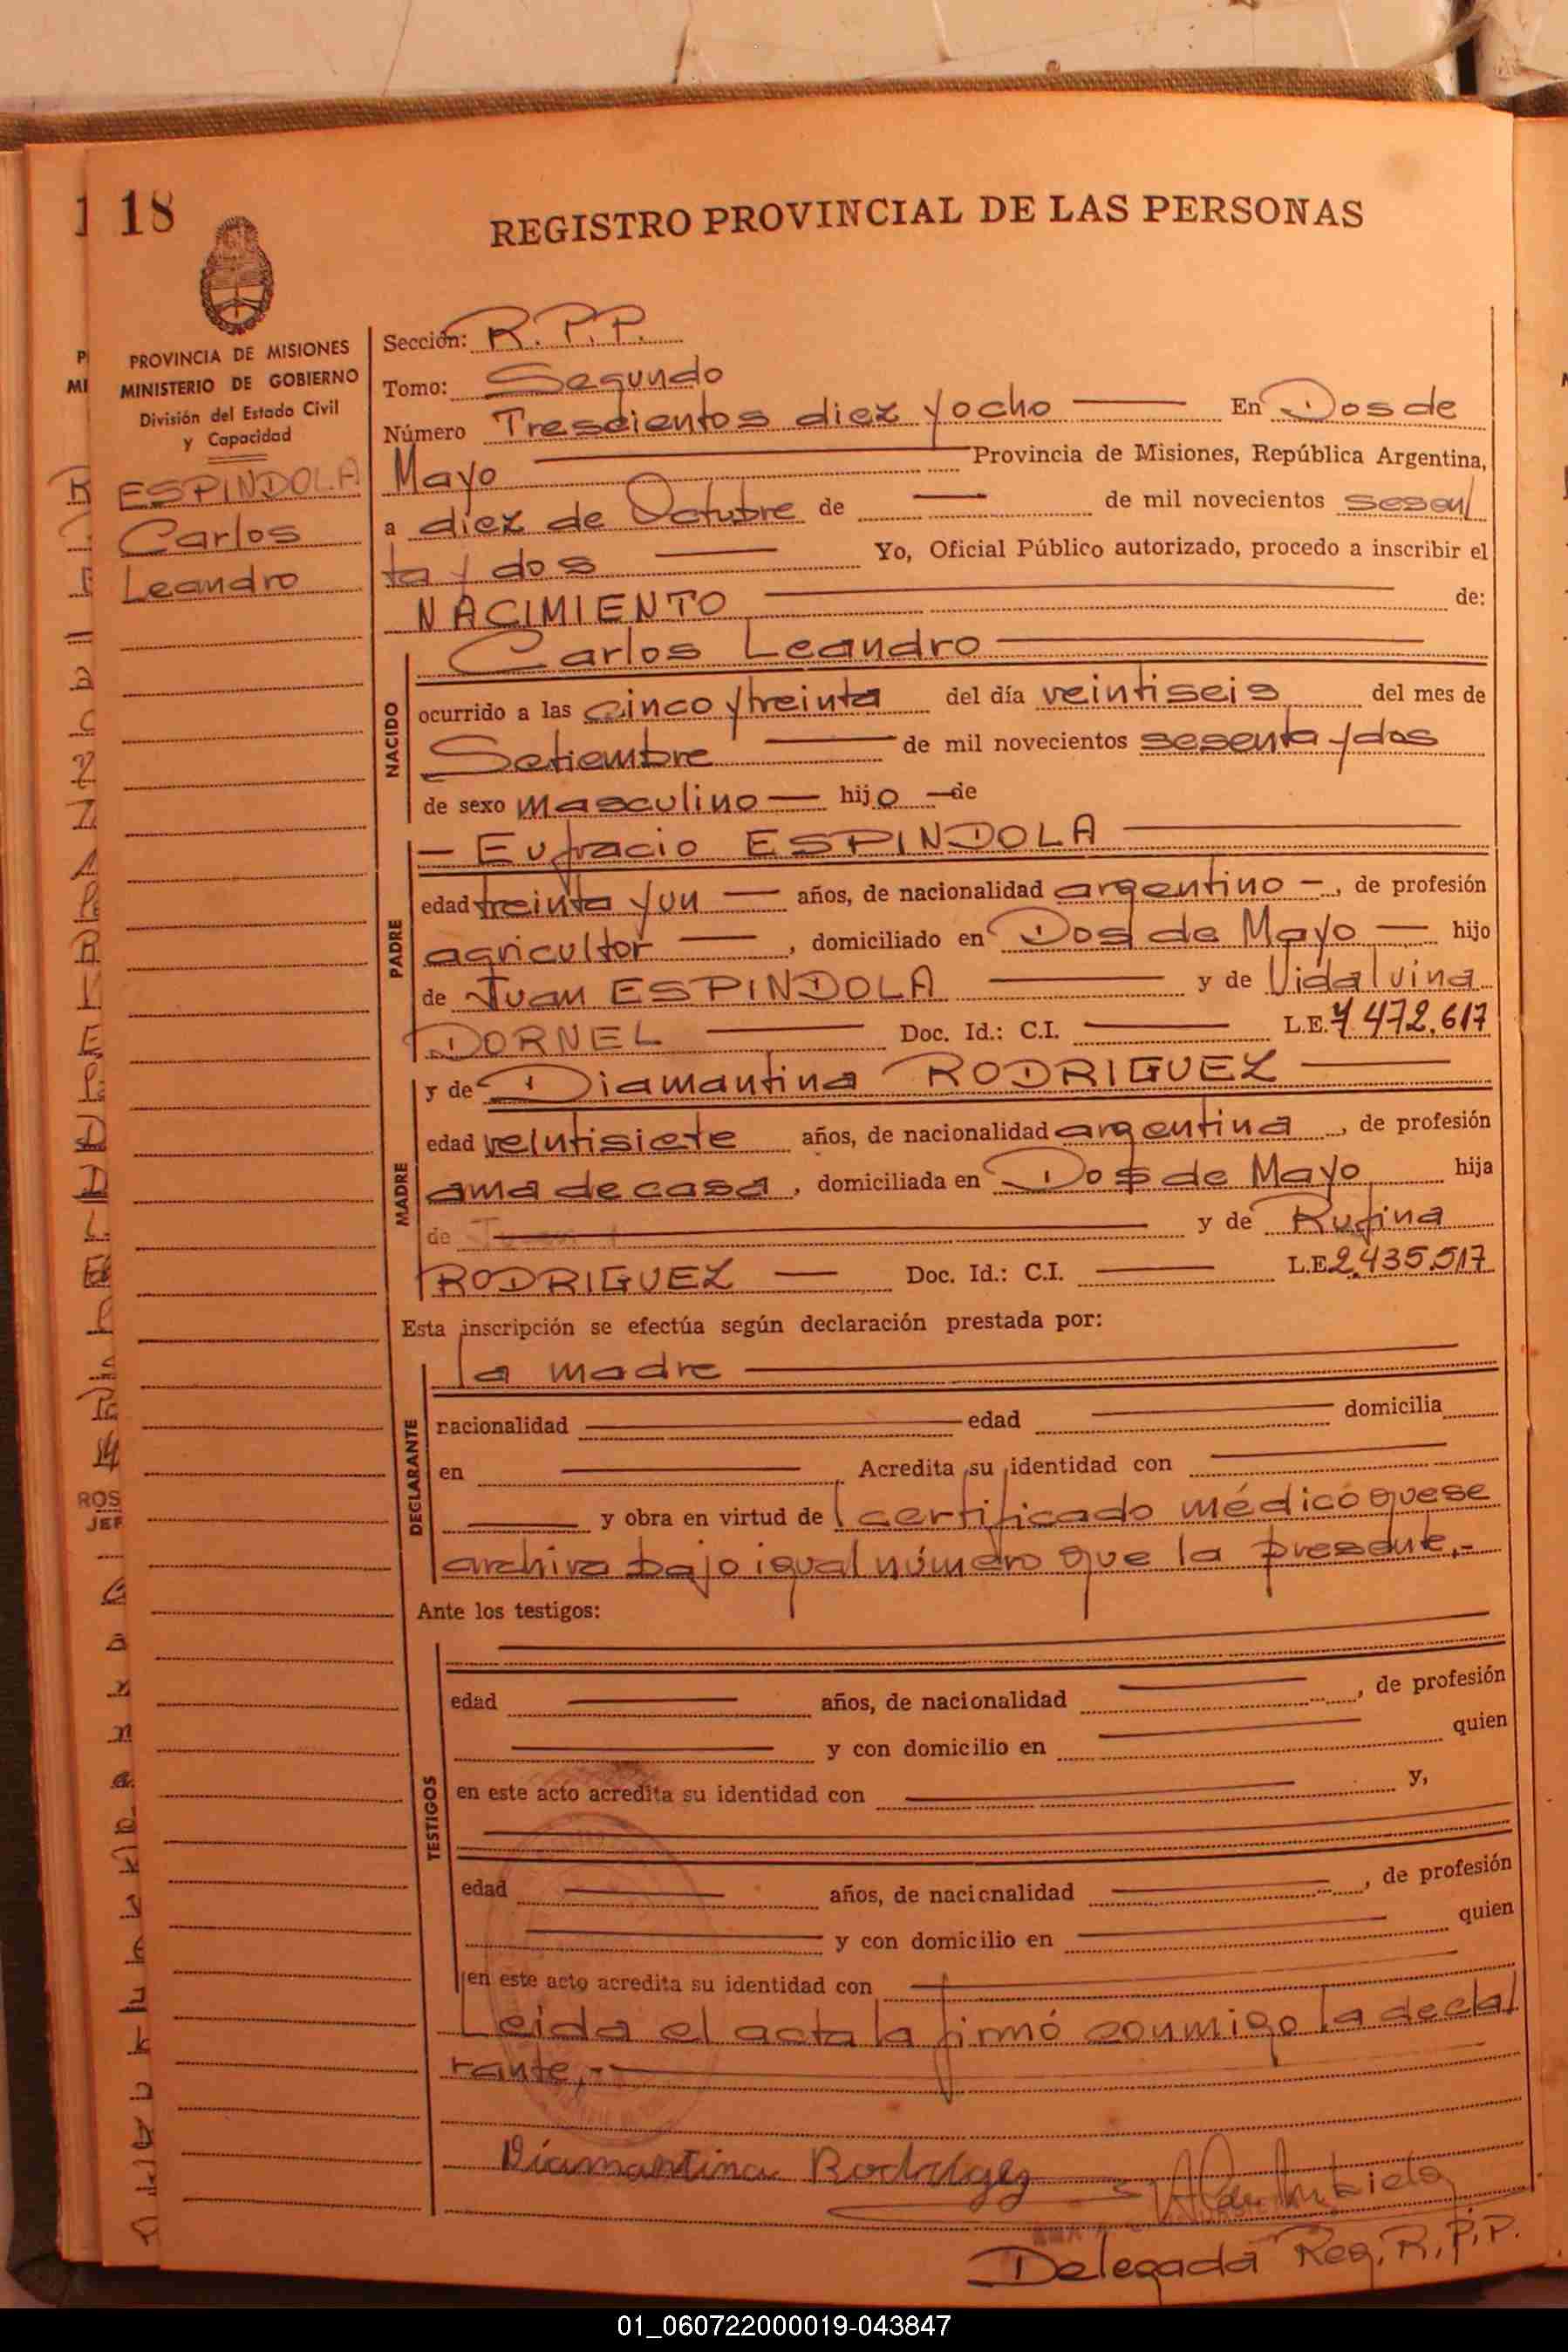 18
REGISTRO PROVINCIAL DE LAS PERSONAS
PROVINCIA DE MISIONES
MINISTERIO DE GOBIERNO
División del Estado Civil
y Capacidad
ESPINDOLA
Carlos
Leandro
Sección: R.P.P.
Tomo: Segundo
Número Trescientos diez y ocho En Dos de
Mayo Provincia de Misiones, República Argentina,
a diez de Octubre de de mil novecientos sesen
ta y dos Yo, Oficial Público autorizado, procedo a inscribir el
NACIMIENTO de:
NACIDO
Carlos Leandro
ocurrido a las cinco y treinta del día veintiseis del mes de
Setiembre de mil novecientos sesenta y dos
de sexo masculino hijo de
PADRE
Eufracio ESPINDOLA
edad treinta y un años, de nacionalidad argentino, de profesión
agricultor, domiciliado en Dos de Mayo hijo
de Juan ESPINDOLA y de Vidalvina
DORNEL Doc. Id.: C.I. L.E. 7.472.617
MADRE
y de Diamantina RODRIGUEZ
edad veintisiete años, de nacionalidad argentina, de profesión
ama de casa, domiciliada en Dos de Mayo hija
de y de Rufina
RODRIGUEZ Doc. Id.: C.I. L.E. 2.435.517
Esta inscripción se efectúa según declaración prestada por:
DECLARANTE
la madre
nacionalidad edad domicilia
en Acredita su identidad con
y obra en virtud de certificado médico que se
archiva bajo igual número que la presente.-
Ante los testigos:
TESTIGOS
edad años, de nacionalidad , de profesión
y con domicilio en quien
en este acto acredita su identidad con y,
edad años, de nacicnalidad , de profesión
y con domicilio en quien
en este acto acredita su identidad con
Leida el acta la firmó conmigo la decla
rante.-
Diamantina Rodrígez
Delegada Reg. R.P.P.
01_060722000019-043847